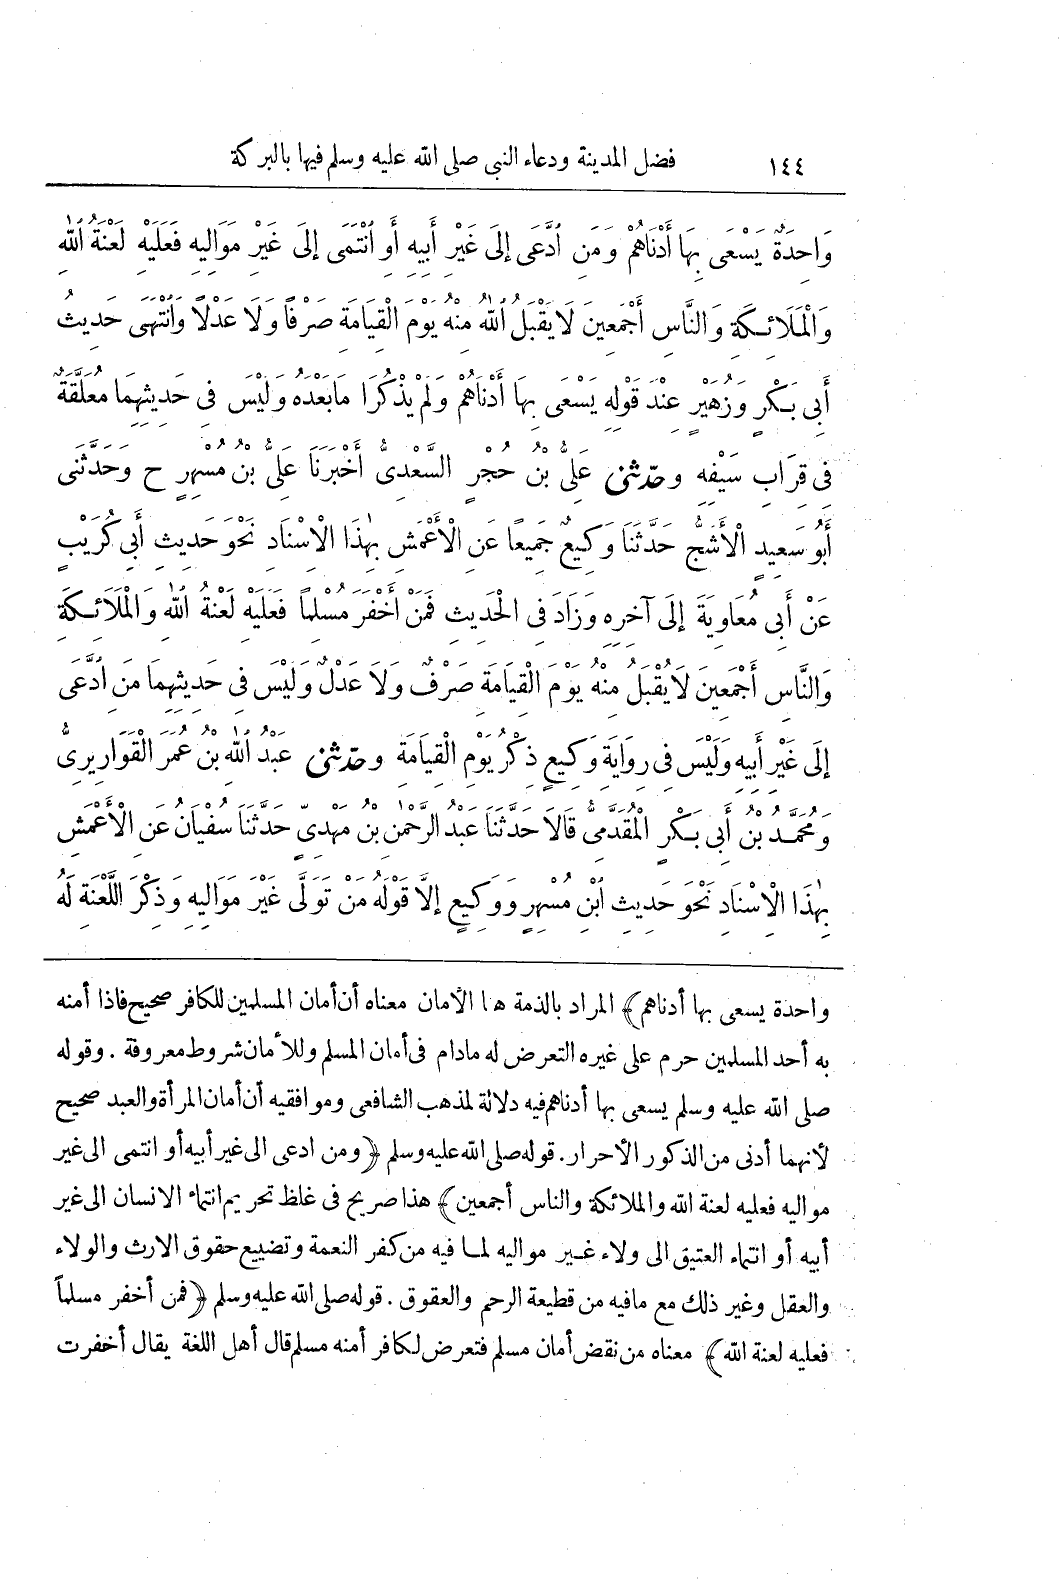 ١٤٤ فضل المدينة ودعاء النبى صلى الله عليه وسلم فيها بالبركة
وَاحِدَةٌ يَسْعَى بِهَا أَدْنَاهُمْ وَمَنِ ادَّعَى إِلَى غَيْرِ أَبِيهِ أَوِ انْتَمَى إِلَى غَيْرِ مَوَالِيهِ فَعَلَيْهِ لَعْنَةُ اللهِ
وَالْمَلَائِكَةِ وَالنَّاسِ أَجْمَعِينَ لَا يَقْبَلُ اللهُ مِنْهُ يَوْمَ الْقِيَامَةِ صَرْفًا وَلَا عَدْلًا وَانْتَهَى حَدِيثُ
أَبِى بَكْرٍ وَزُهَيْرٍ عِنْدَ قَوْلِهِ يَسْعَى بِهَا أَدْنَاهُمْ وَلَمْ يَذْكُرَا مَا بَعْدَهُ وَلَيْسَ فِى حَدِيثِهِمَا مُعَلَّقَةٌ
فِى قِرَابِ سَيْفِهِ وحَدَّثَنِى عَلِىُّ بْنُ حُجْرٍ السَّعْدِىُّ أَخْبَرَنَا عَلِىُّ بْنُ مُسْهِرٍ ح وَحَدَّثَنِى
أَبُو سَعِيدٍ الْأَشَجُّ حَدَّثَنَا وَكِيعٌ جَمِيعًا عَنِ الْأَعْمَشِ بِهٰذَا الْإِسْنَادِ نَحْوَ حَدِيثِ أَبِى كُرَيْبٍ
عَنْ أَبِى مُعَاوِيَةَ إِلَى آخِرِهِ وَزَادَ فِى الْحَدِيثِ فَمَنْ أَخْفَرَ مُسْلِمًا فَعَلَيْهِ لَعْنَةُ اللهِ وَالْمَلَائِكَةِ
وَالنَّاسِ أَجْمَعِينَ لَا يُقْبَلُ مِنْهُ يَوْمَ الْقِيَامَةِ صَرْفٌ وَلَا عَدْلٌ وَلَيْسَ فِى حَدِيثِهِمَا مَنِ ادَّعَى
إِلَى غَيْرِ أَبِيهِ وَلَيْسَ فِى رِوَايَةِ وَكِيعٍ ذِكْرُ يَوْمِ الْقِيَامَةِ وحَدَّثَنِى عَبْدُ اللهِ بْنُ عُمَرَ الْقَوَارِيرِىُّ
وَمُحَمَّدُ بْنُ أَبِى بَكْرٍ الْمُقَدَّمِىُّ قَالَا حَدَّثَنَا عَبْدُ الرَّحْمٰنِ بْنُ مَهْدِىٍّ حَدَّثَنَا سُفْيَانُ عَنِ الْأَعْمَشِ
بِهٰذَا الْإِسْنَادِ نَحْوَ حَدِيثِ ابْنِ مُسْهِرٍ وَوَكِيعٍ إِلَّا قَوْلَهُ مَنْ تَوَلَّى غَيْرَ مَوَالِيهِ وَذِكْرَ اللَّعْنَةِ لَهُ
واحدة يسعى بها أدناهم﴾ المراد بالذمة هنا الأمان معناه أن أمان المسلمين للكافر صحيح فاذا أمنه
به أحد المسلمين حرم على غيره التعرض له مادام فى أمان المسلم وللأمان شروط معروفة . وقوله
صلى الله عليه وسلم يسعى بها أدناهم فيه دلالة لمذهب الشافعى وموافقيه أن أمان المرأة والعبد صحيح
لأنهما أدنى من الذكور الأحرار. قوله صلى الله عليه وسلم ﴿ومن ادعى الى غير أبيه أو انتمى الى غير
مواليه فعليه لعنة الله والملائكة والناس أجمعين﴾ هذا صريح فى غلظ تحريم انتماء الانسان الى غير
أبيه أو انتماء العتيق الى ولاء غير مواليه لما فيه من كفر النعمة وتضييع حقوق الارث والولاء
والعقل وغير ذلك مع مافيه من قطيعة الرحم والعقوق . قوله صلى الله عليه وسلم ﴿فمن أخفر مسلماً
فعليه لعنة الله﴾ معناه من نقض أمان مسلم فتعرض لكافر أمنه مسلم قال أهل اللغة يقال أخفرت